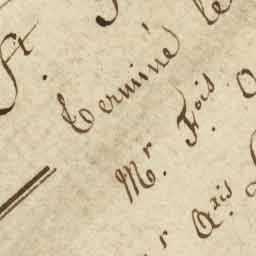 St.
Terminé le
Mr. Fois.
r Qxis